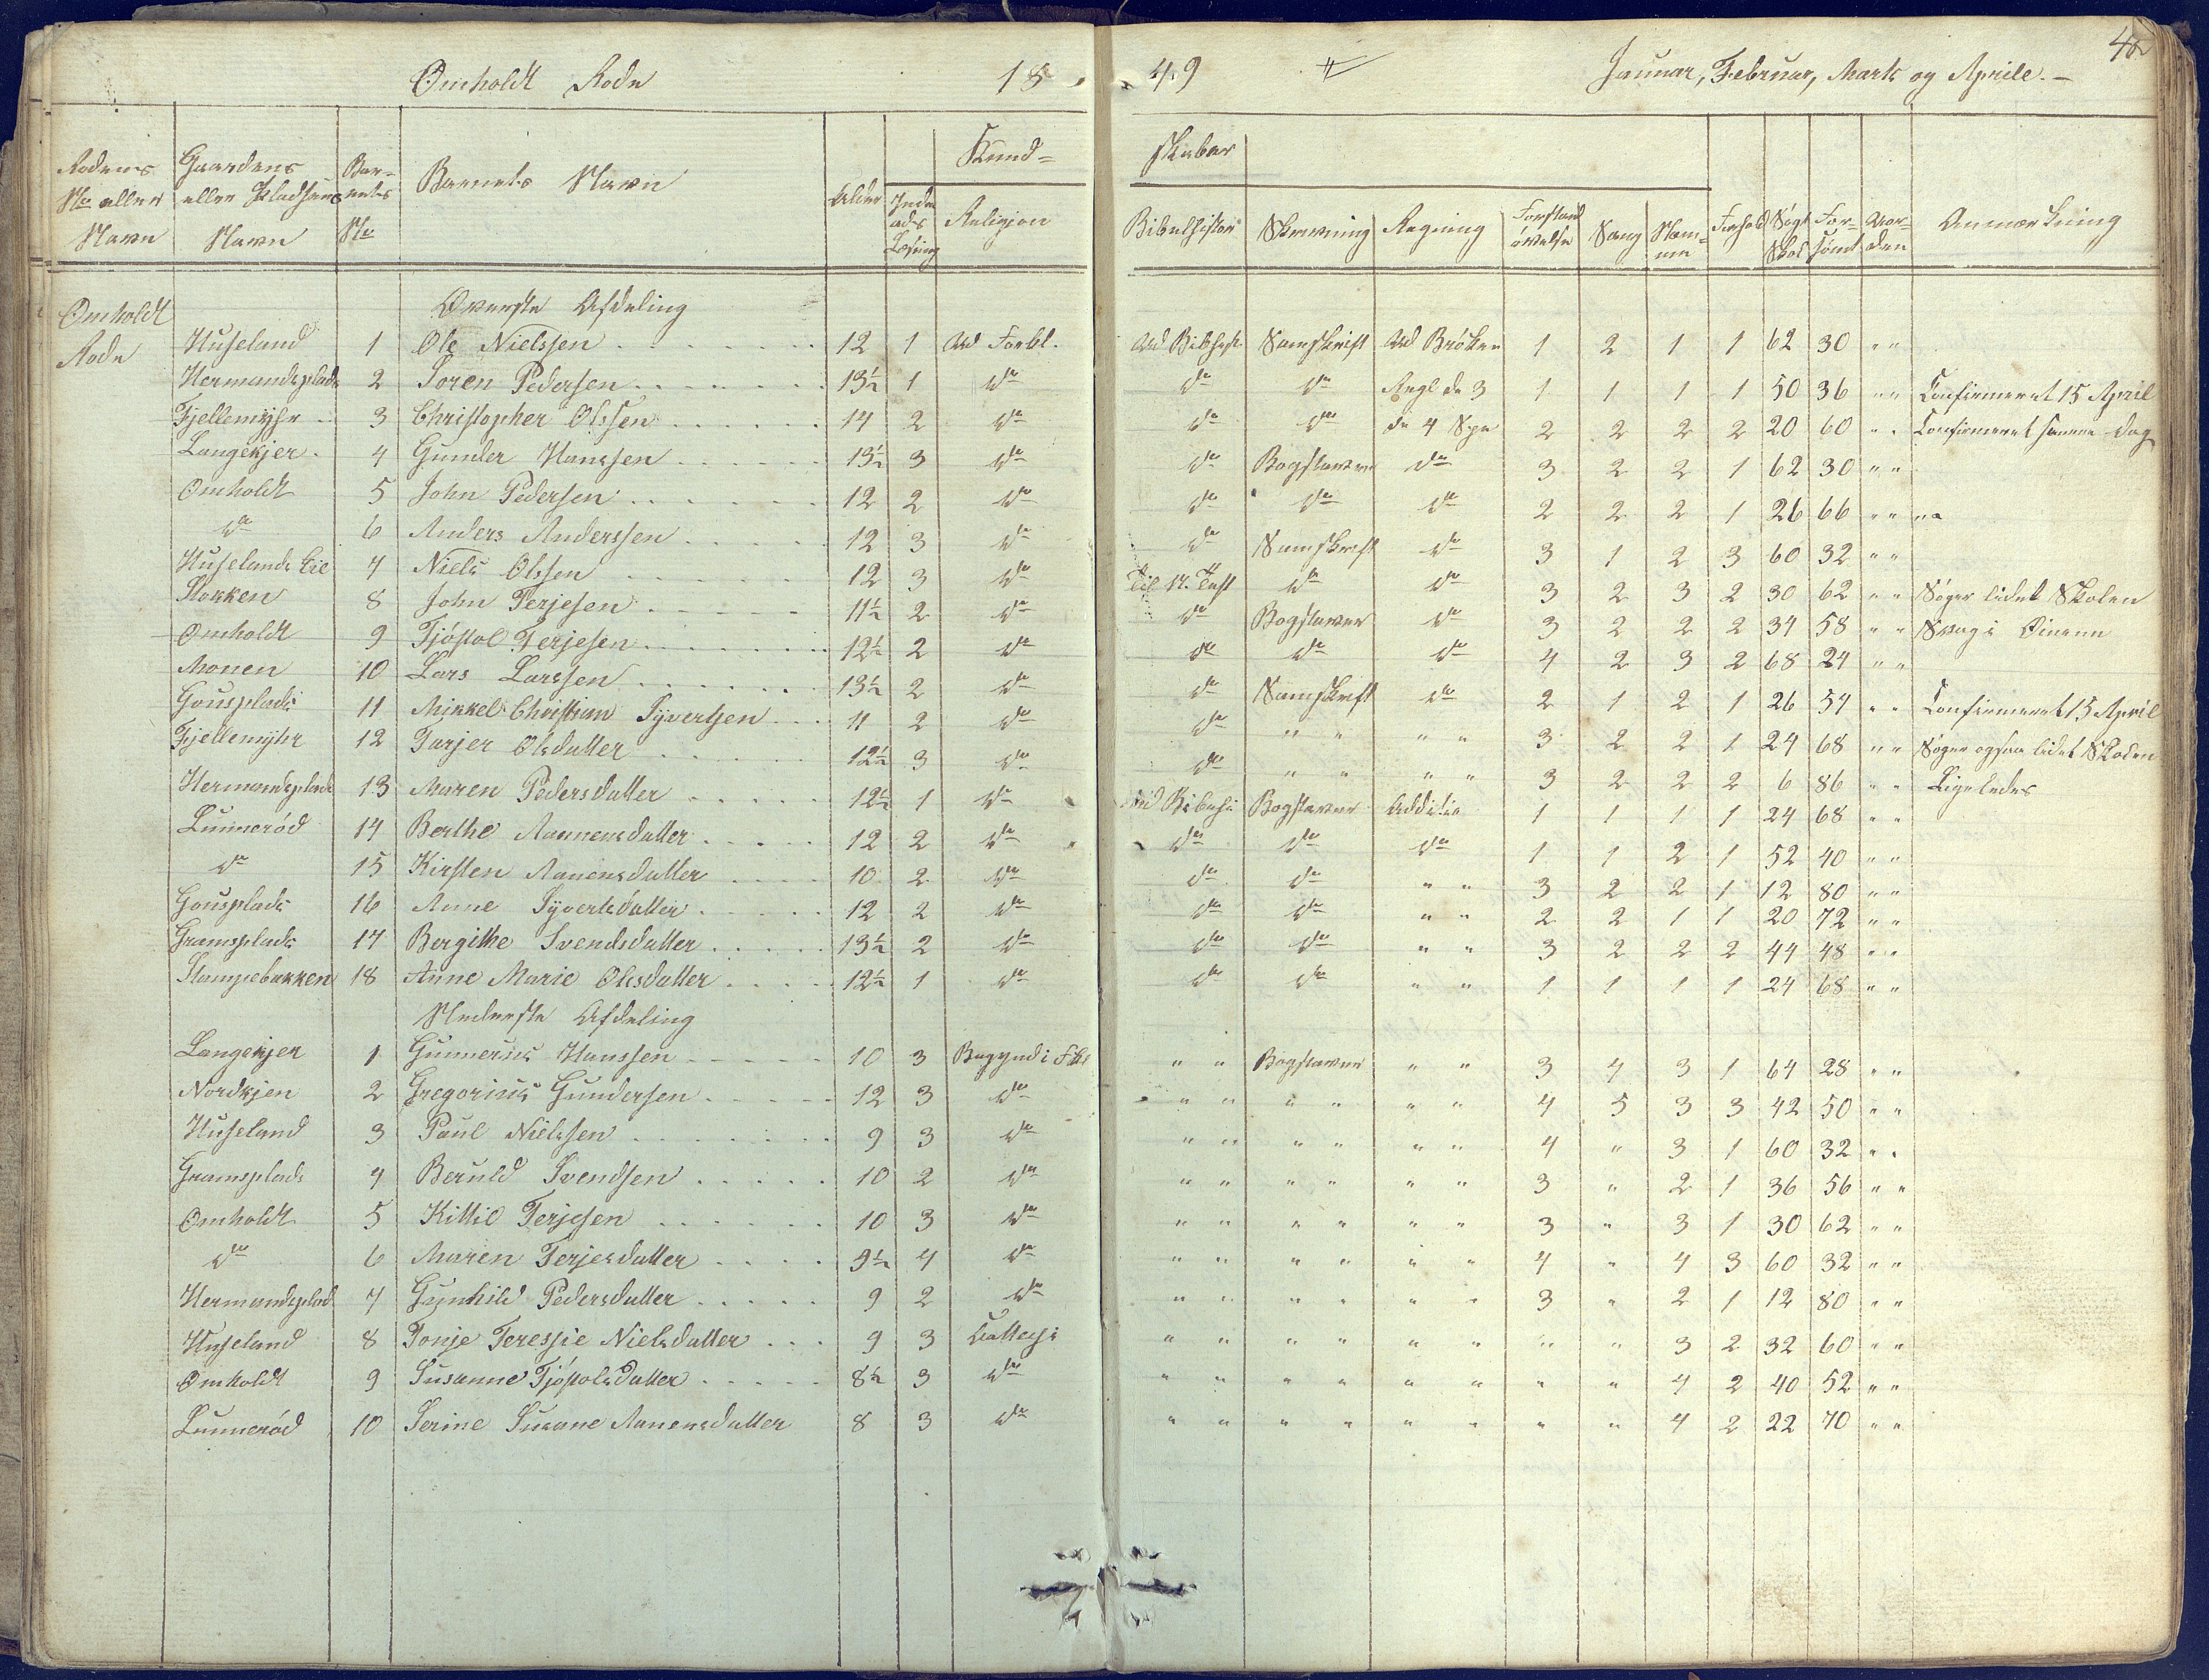 Omholdt Rode 1849 Januar, Februar, Marts og Aprile. –
Rodens No eller Navn Gaardens eller Pladsens Navn Barnets No Barnets Navn Alder Indenads Læsning Kundskaber Religion Bibelhistorie Skrivning Regning Forstandsøvelse Sang Nemme Forhold Søgt Skol Forsømt Orden Anmærkning
Omholdt Rode
Øverste Afdeling
Huseland 1 Ole Nielssen 12 1 Ud Forkl. Ud Bibhist Samskrift Ud Brøken 1 2 1 1 62 30 " "
Hermandsplads 2 Soren Pedersen 13½ 1 do do do Regl de 3 1 1 1 1 50 36 " " Confirmeret 15 April
Fjellemyhr 3 Christopher Olssen 14 2 do do do de 4 Spe 2 2 2 2 20 60 " " Confirmeret samme dag
Langekjer 4 Gunder Hanssen 13½ 3 do do Bogstaver do 3 2 2 1 62 30 " "
Omholdt 5 John Pedersen 12 2 do do do do 2 2 2 1 26 66 " "
do 6 Anders Anderssen 12 3 do do Samskrift do 3 1 2 3 60 32 " "
Huselands Eie 7 Niels Olssen 12 3 do Til N. Test do do 3 2 3 2 30 62 " " Søger lidet Skolen
Stokken 8 John Terjesen 11½ 2 do do Bogstaver do 3 2 2 2 34 58 " " Svag i Øinene
Omholdt 9 Tjöstol Terjesen 12½ 2 do do do do 4 2 3 2 68 24 " "
Monen 10 Lars Larssen 13½ 2 do do Samskrift do 2 1 2 1 26 54 " " Confirmeret 15 April
Gousplads 11 Mikkel Christian Syvertsen 11 2 do do " " " " 3 2 2 1 24 68 " " Søger ogsaa lidet Skolen
Fjellemyhr 12 Tarjer Olsdatter 12½ 3 do do " " " " 3 2 2 2 6 86 " " Ligeledes
Hermandsplads 13 Maren Pedersdatter 12½ 1 do Ud Bibehi Bogstaver Additio 1 1 1 1 24 68 " "
Lunneröd 14 Berthe Aannensdatter 12 2 do do do do 1 1 2 1 52 40 " "
do 15 Kirsten Aanensdatter 10 2 do do do " " 3 2 2 1 12 80 " "
Gousplads 16 Anne Syvertsdatter 12 2 do do do " " 2 2 1 1 20 72 " "
Gramsplads 17 Bergithe Svendsdatter 13½ 2 do do do " " 3 2 2 2 44 48 " "
Stampebakken 18 Anne Marie Olesdatter 12½ 1 do do do " " 1 1 1 1 24 68 " "
Nederste Afdeling
Langekjer 1 Gunnerius Hanssen 10 3 Begynd i Fkl " " Bogstaver " " 3 4 3 1 64 28 " "
Nordkjen 2 Gregorius Gundersen 12 3 do " " " " " " 4 5 3 3 42 50 " "
Huseland 3 Paul Nielssen 9 3 do " " " " " " 4 " 3 1 60 32 " "
Gramsplads 4 Beruld Svendsen 10 2 do " " " " " " 3 " 2 1 36 56 " "
Omholdt 5 Kittil Terjesen 10 3 do " " " " " " 3 " 3 1 30 62 " "
do 6 Maren Terjesdatter 9½ 4 do " " " " " " 4 " 4 3 60 32 " "
Hermandsplads 7 Gunhild Pedersdatter 9 2 do " " " " " " 3 " 2 1 12 80 " "
Huseland 8 Tonje Teressie Nielsdatter 9 3 Cattechi " " " " " " " " 3 2 32 60 " "
Omholdt 9 Susanne Tjöstolsdatter 8½ 3 do " " " " " " " " 4 2 40 52 " "
Lunneröd 10 Serine Susane Aanensdatter 8 3 do " " " " " " " " 4 2 22 70 " "